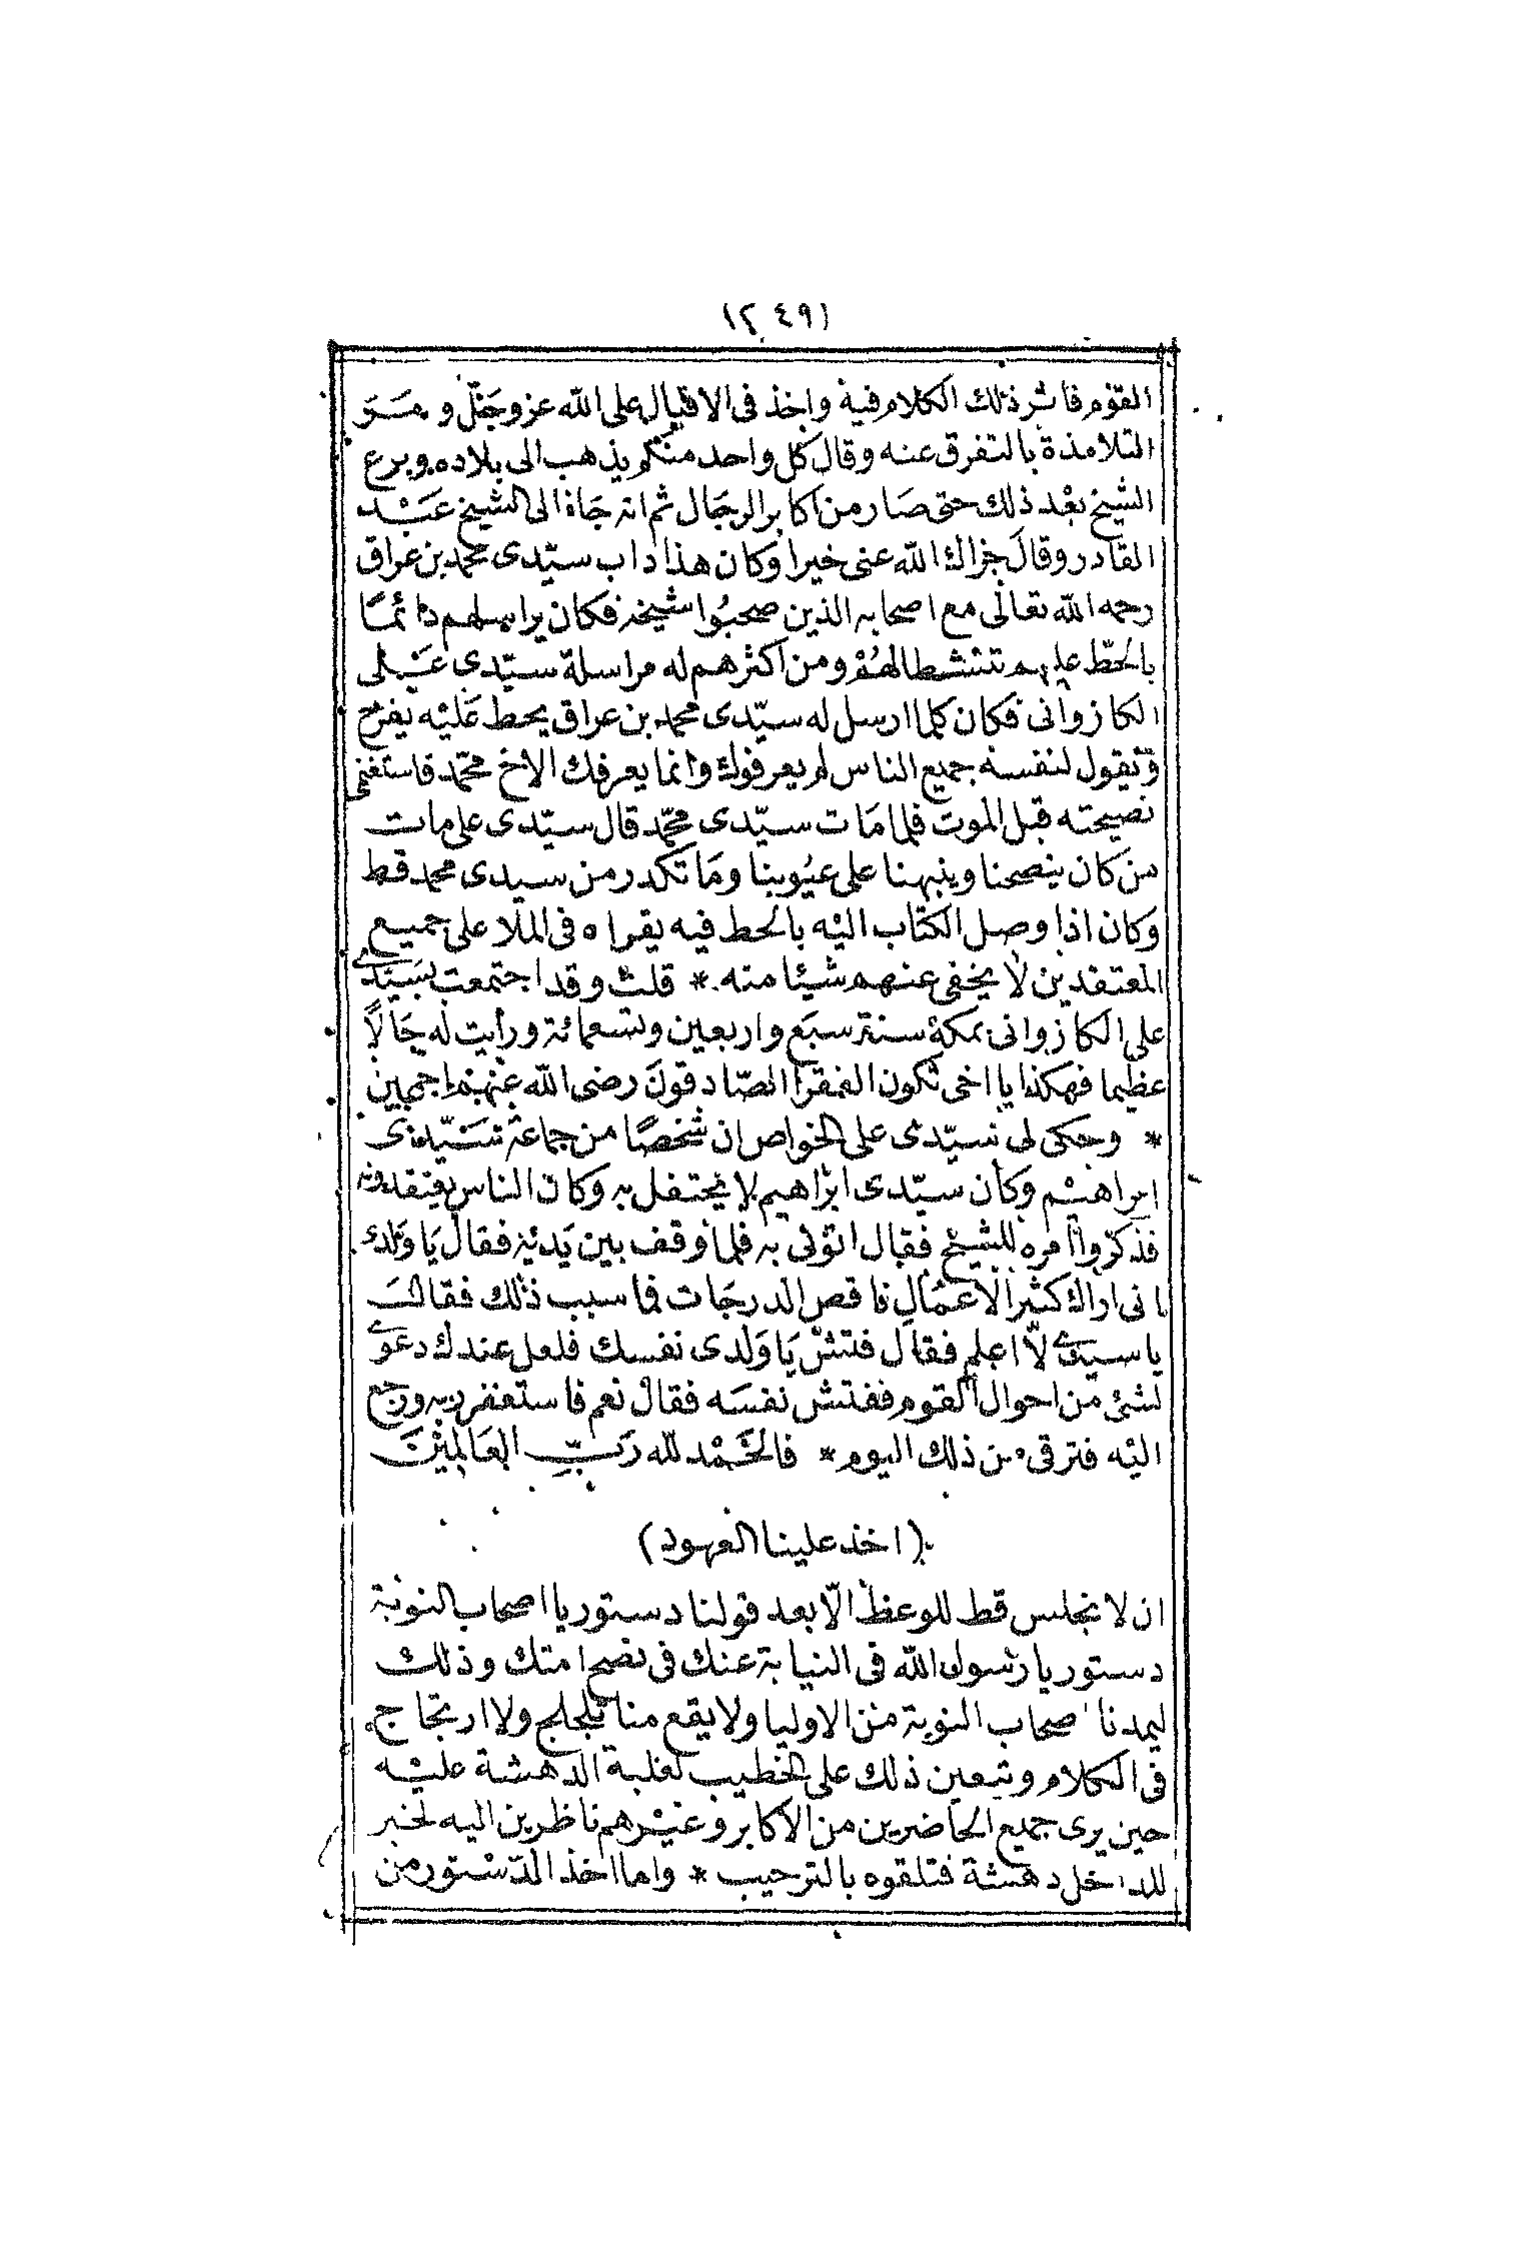 (٢٤٩)
القوم فاثر ذلك الكلام فيه واخذ فى الاقبال على الله عز وجل و
التلامذة بالتفرق عنه وقال كل واحد منكم يذهب الى بلاده وبرع
الشيخ بعد ذلك حتى صار من اكابر الرجال ثم انه جاء الى الشيخ عبد
القادر وقال جزاك الله عنى خيرا وكان هذا داب سيدى محمد بن عراق
رحمه الله تعالى مع اصحابه الذين صحبوا شيخه فكان يراسلهم دائما
بالحط عليهم تنشطا لهم ومن اكثرهم له مراسلة سيدى على
الكازوانى فكان كلما ارسل له سيدى محمد بن عراق يحط عليه يفرح
ويقول لنفسه جميع الناس لم يعرفوك وانما يعرفك الاخ محمد فاستغنمى
نصيحته قبل الموت فلما مات سيدى محمد قال سيدى على مات
من كان ينصحنا وينبهنا على عيوبنا وما تكدر من سيدى محمد قط
وكان اذا وصل الكتاب اليه بالحط فيه يقراه فى الملا على جميع
المعتقدين لا يخفى عنهم شيئا منه * قلت وقد اجتمعت بسيدى
على الكازوانى بمكة سنة سبع واربعين وتسعمائة ورأيت له حالا
عظيما فهكذا يا اخى تكون الفقرا الصادقون رضى الله عنهم اجمعين
* وحكى لى سيدى على الخواص ان شخصا من جماعة سيدى
ابراهيم وكان سيدى ابراهيم لا يحتفل به وكان الناس يعتقدونه
فذكروا امره للشيخ فقال ائتونى به فلما وقف بين يديه فقال يا ولدى
انى اراك كثير الاعمال ناقص الدرجات فما سبب ذلك فقال
يا سيدى لا اعلم فقال فتش يا ولدى نفسك فلعل عندك دعوى
لشئ من احوال القوم ففتش نفسه فقال نعم فاستغفر ربه ورجع
اليه فترقى من ذلك اليوم * فالحمد لله رب العالمين
(اخذ علينا العهود)
ان لا نجلس قط للوعظ الا بعد قولنا دستور يا اصحاب النوبة
دستور يا رسول الله فى النيابة عنك فى نصح امتك وذلك
ليمدنا اصحاب النوبة من الاوليا ولا يقع منا تلجلج ولا ارتجاج
فى الكلام ويتعين ذلك على الخطيب لغلبة الدهشة عليه
حين يرى جميع الحاضرين من الاكابر وغيرهم ناظرين اليه لخبر
للداخل دهشة فتلقوه بالترحيب * واما اخذ الدستور من